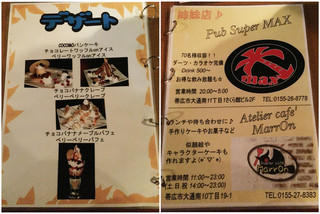 デザート
パンケーキ
チョコレートワッフルonアイス
ベリーワッフルonアイス
チョコバナナクレープ
ベリーベリークレープ
チョコバナナメープルパフェ
ベリーベリーパフェ
姉妹店♪
Pub Super MAX
70名様収容!!
ダーツ・カラオケ完備
Drink 500~
お得な飲み放題も☆
営業時間 20:00~5:00
max
帯広市大通南11丁目さくら館ビル2F
TEL:0155-26-8778
Atelier cafe'
MarrOn
ランチや待ち合わせに♪
手作りケーキやお菓子など
似顔絵や
キャラクターケーキも
作れますよ(*'∀'*)
営業時間 11:00~23:00
土日祝 14:00~23:00
MarrOn
帯広市大通南10丁目19-1
TEL:0155-27-8383